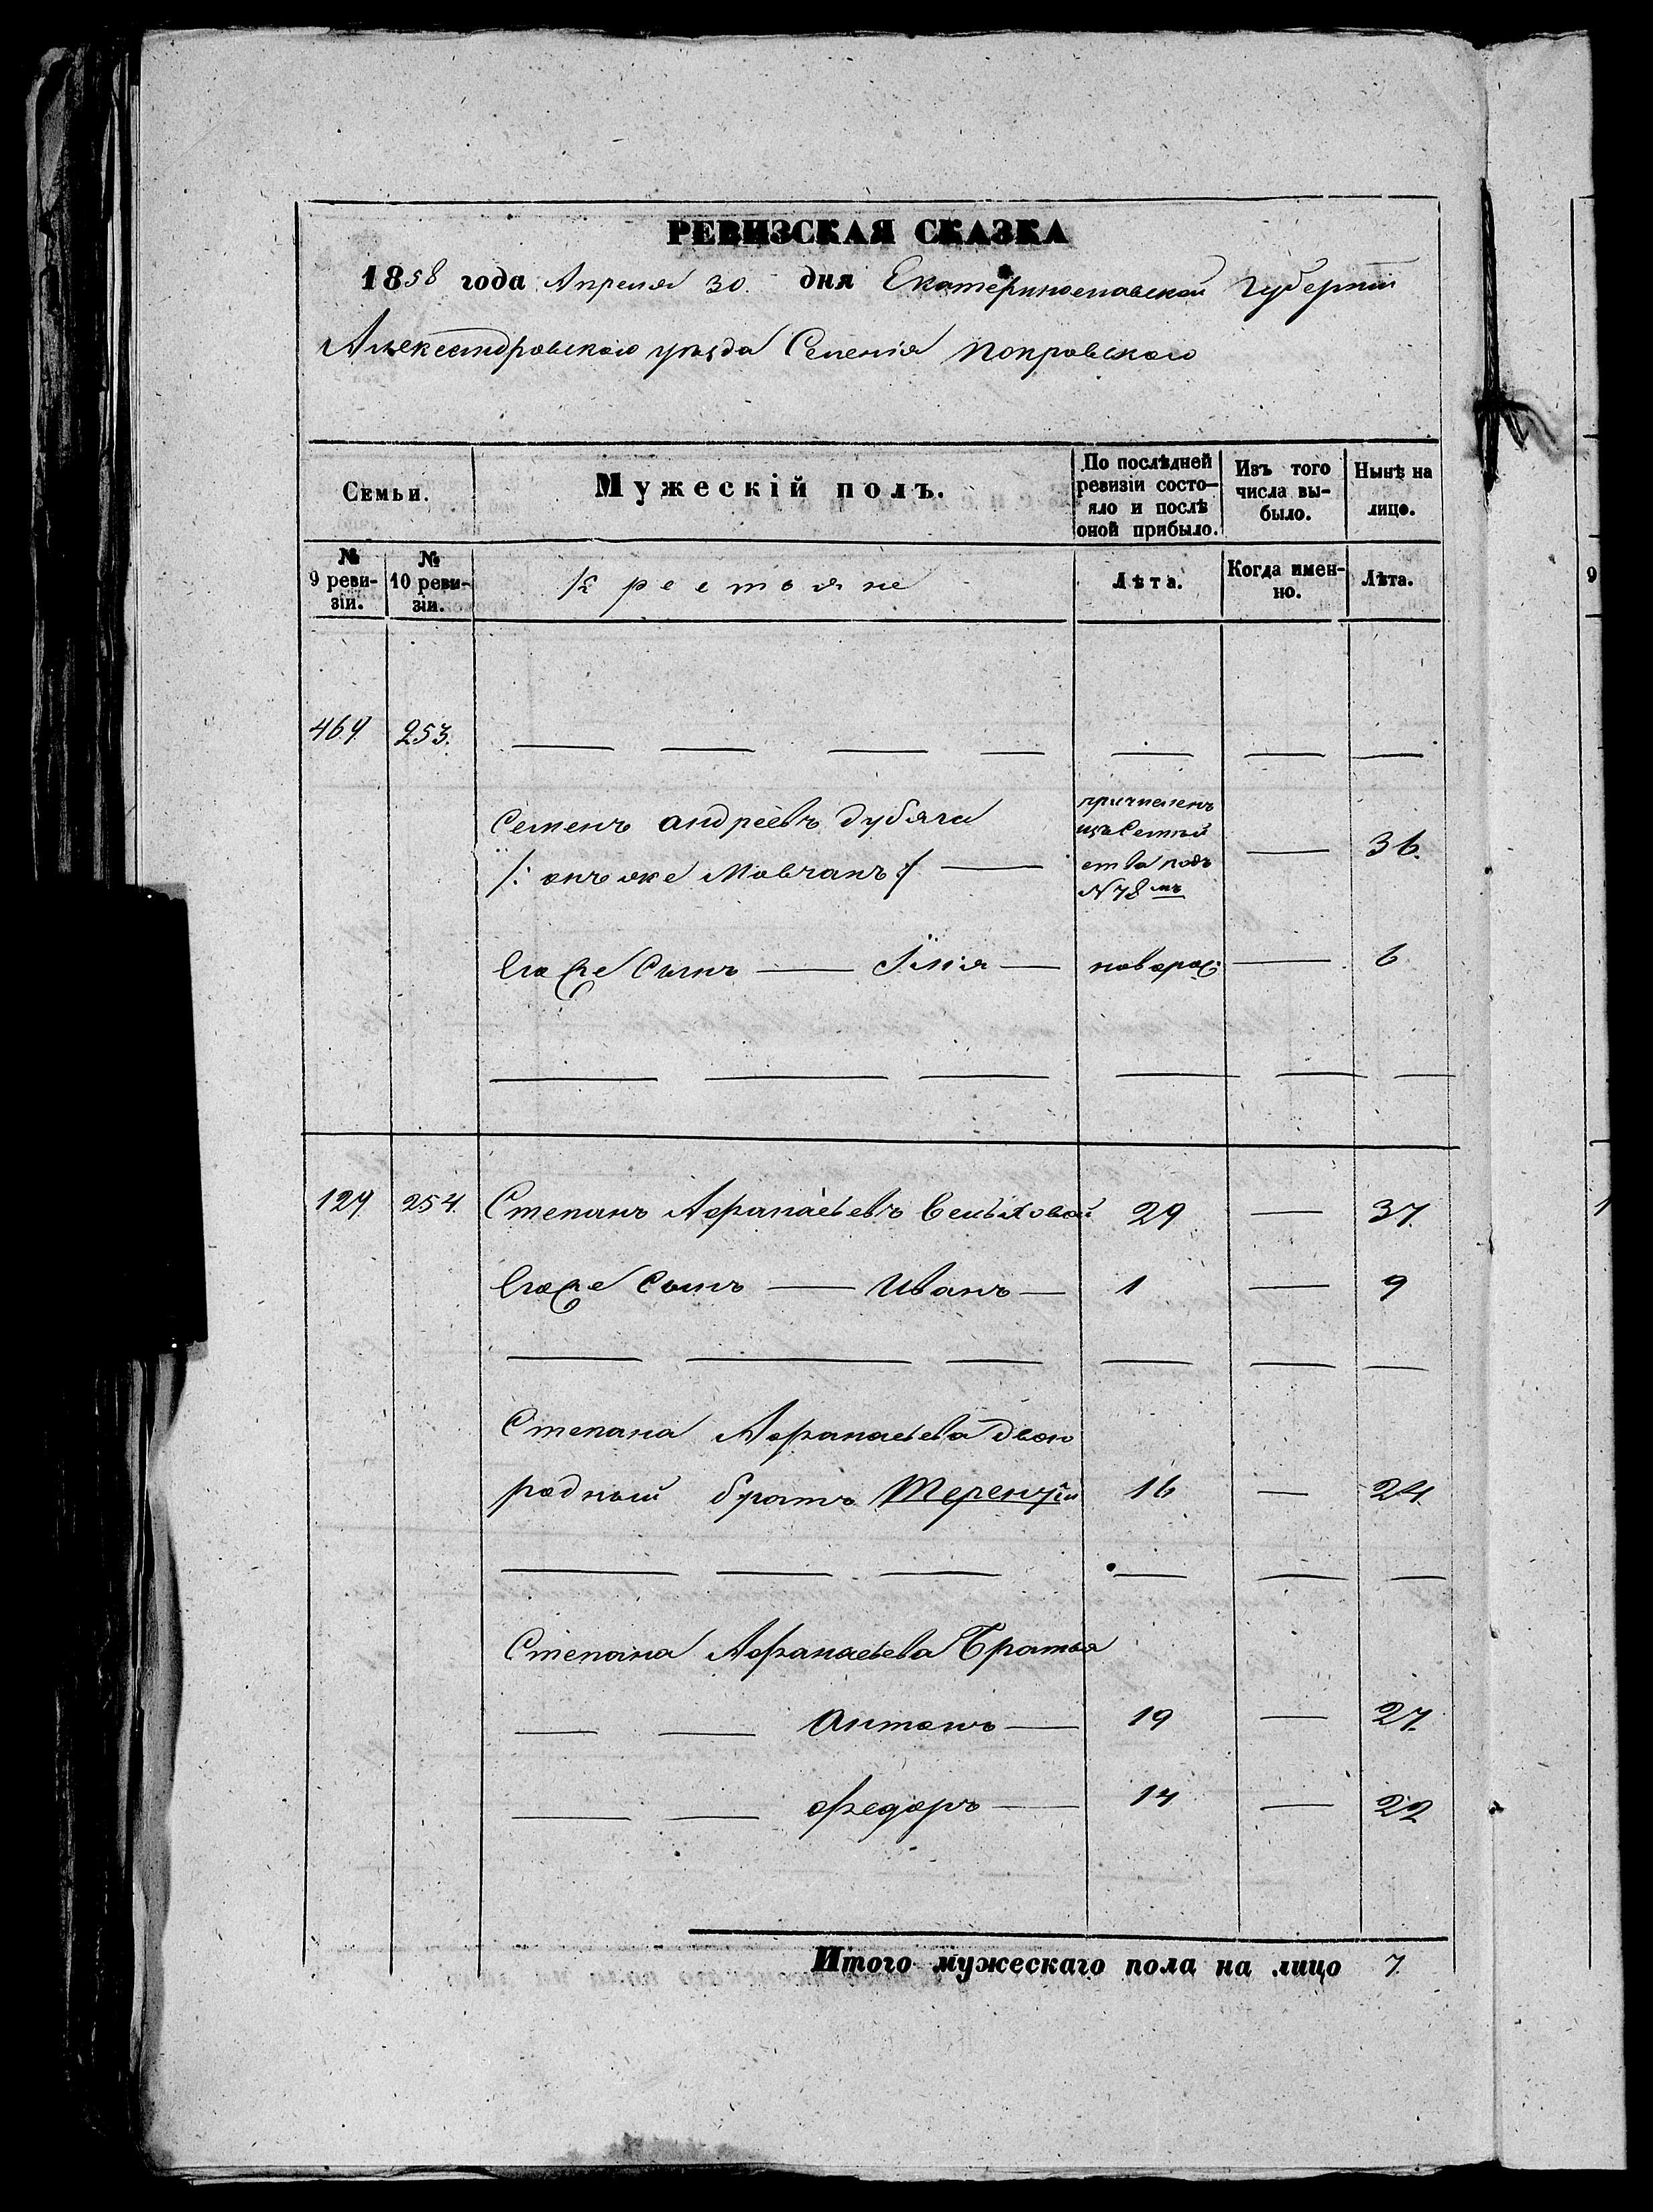 РЕВИЗСКАЯ СКАЗКА
1858 года Апреля 30 дня Екатеринославской Губернiи
Александровского уѣзда Селенiя Покровского
Семьи.
Мужескiй полъ.
По послѣдней ревизiи состо-
яло и послѣ
оной прибыло.
Изъ того
числа вы-
было.
Нынѣ на
лицо.
№
9 реви-
зiи.
№
10 реви-
зiи.
Крестьяне
Лѣта.
Когда имен-
но.
Лѣта.
469. 253.
Семенъ Андреевъ Дубяга
/: онъ же Мовчанъ :/
причисленъ
изъ Семей
ства подъ
N 78 мъ
36.
Его же Сынъ — Илiя — новорож: — 6
129. 254. Степанъ Афанасьевъ 29 — 37.
Его же Сынъ — Иванъ — 1 — 9
Степана Афанасьева двою
родный братъ Терентiй 16 — 24.
Степана Афанасьева Братья
Антонъ — 19 — 27.
Федоръ — 14 — 22
Итого мужескаго пола на лицо 7.
9
1